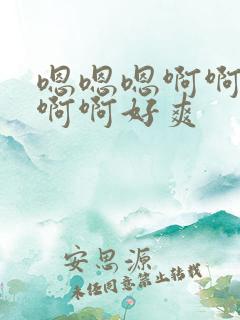 嗯嗯嗯啊啊
啊啊好爽
安思源
未经同意禁止转载